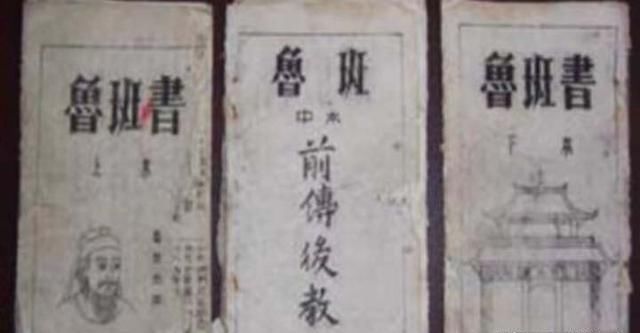 魯班書
上本
魯班
中本
前傳後教
魯班書
下本